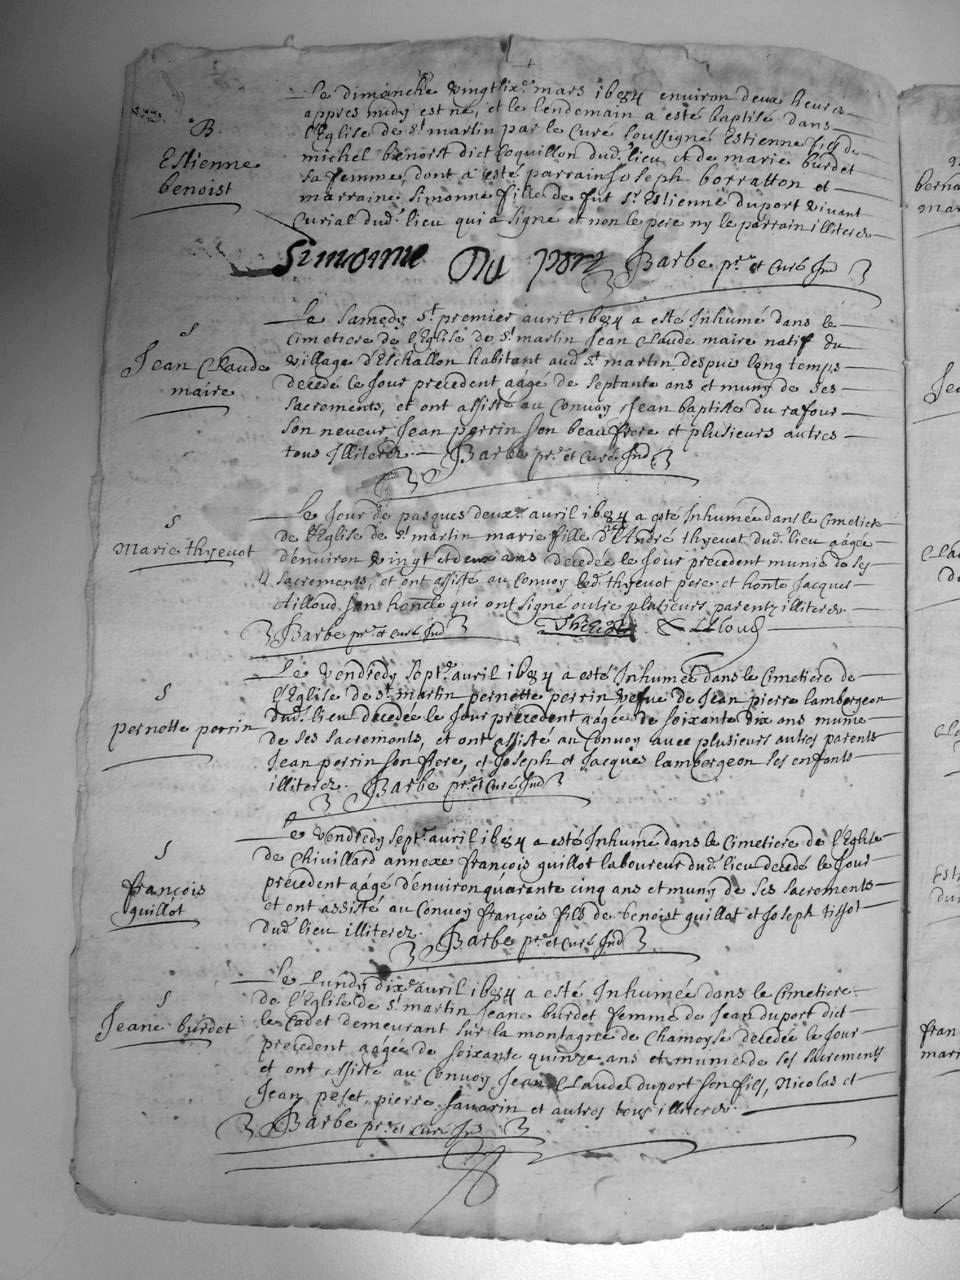 B
Estienne
benoist
Le dimanche vingtsixe mars 1684 environ deux heures
appres midy est né, et le lendemain a esté baptisé dans
l'Eglise de St martin par le Curé soussigné Estienne fils de
michel benoist dict Coquillon dud. lieu et de marie burdet
sa femme, dont a esté parrain Joseph borratton et
marraine Simonne fille de fut Sr Estienne duport vivant
Curial dud. lieu qui a signé et non le pere ny le parrain illiteres
Simonne Du port Barbe ptre et Curé Ind
S
Jean Claude
maire
Le Samedy St premier avril 1684 a esté Inhumé dans le
Cimetiere de l'Eglise de St martin Jean Claude maire natif du
village d'Eschallon habitant aud. St martin despuis long temps
decedé le Jour precedent aagé de septante ans et muny de ses
sacrements, et ont assisté au Convoy Jean baptiste du rafour
son neveur Jean perrin son beau frere et plusieurs autres
tous Illiterez. Barbe ptre et Curé Ind
S
Marie thyevot
Le Jour de pasques deuxe avril 1684 a esté Inhumée dans le Cimetiere
de l'Eglise de St martin marie fille d'André thyevot dud. lieu aagée
d'environ vingt et deux ans decedée le Jour precedent munie de ses
Sacrements, et ont assisté au Convoy led. thyevot pere et honte Jacques
Ailloud son qui ont signé outre plusieurs parentz illiteres
Barbe ptre et Curé Ind
S
pernette perrin
Le Vendredy Septe avril 1684 a esté Inhumée dans le Cimetiere de
l'Eglise de St martin pernette perrin vefue de Jean pierre lambergeon
dud. lieu decedée le Jour precedent aagée de soixante dix ans munie
de ses sacrements, et ont assisté au Convoy avec plusieurs autres parents
Jean perrin son frere, et Joseph et Jacques lambergeon ses enfants
illiterez. Barbe ptre et Curé Ind
S
françois
guillot
Le Vendredy Septe avril 1684 a esté Inhumé dans le Cimetiere de l'Eglise
de Chivillard annexe françois guillot laboureur dud. lieu decedé le Jour
precedent aagé d'environ quarente cinq ans et muny de ses sacrements
et ont assisté au Convoy françois fils de benoist guillot et Joseph tissot
dud. lieu illiterez. Barbe ptre et Curé Ind
S
Jeane burdet
Le Lundy dixe avril 1684 a esté Inhumée dans le Cimetiere
de l'Eglise de St martin Jeane burdet femme de Jean duport dict
le Cadet demeurant sur la montagne de Chamoyse decedée le Jour
precedent aagée de soixante quinze ans et munie de ses sacrements
et ont assisté au Convoy Jean Claude duport son fils, Nicolas et
Jean peset, pierre Savarin et autres tous illiteres.
Barbe ptre et Curé Ind